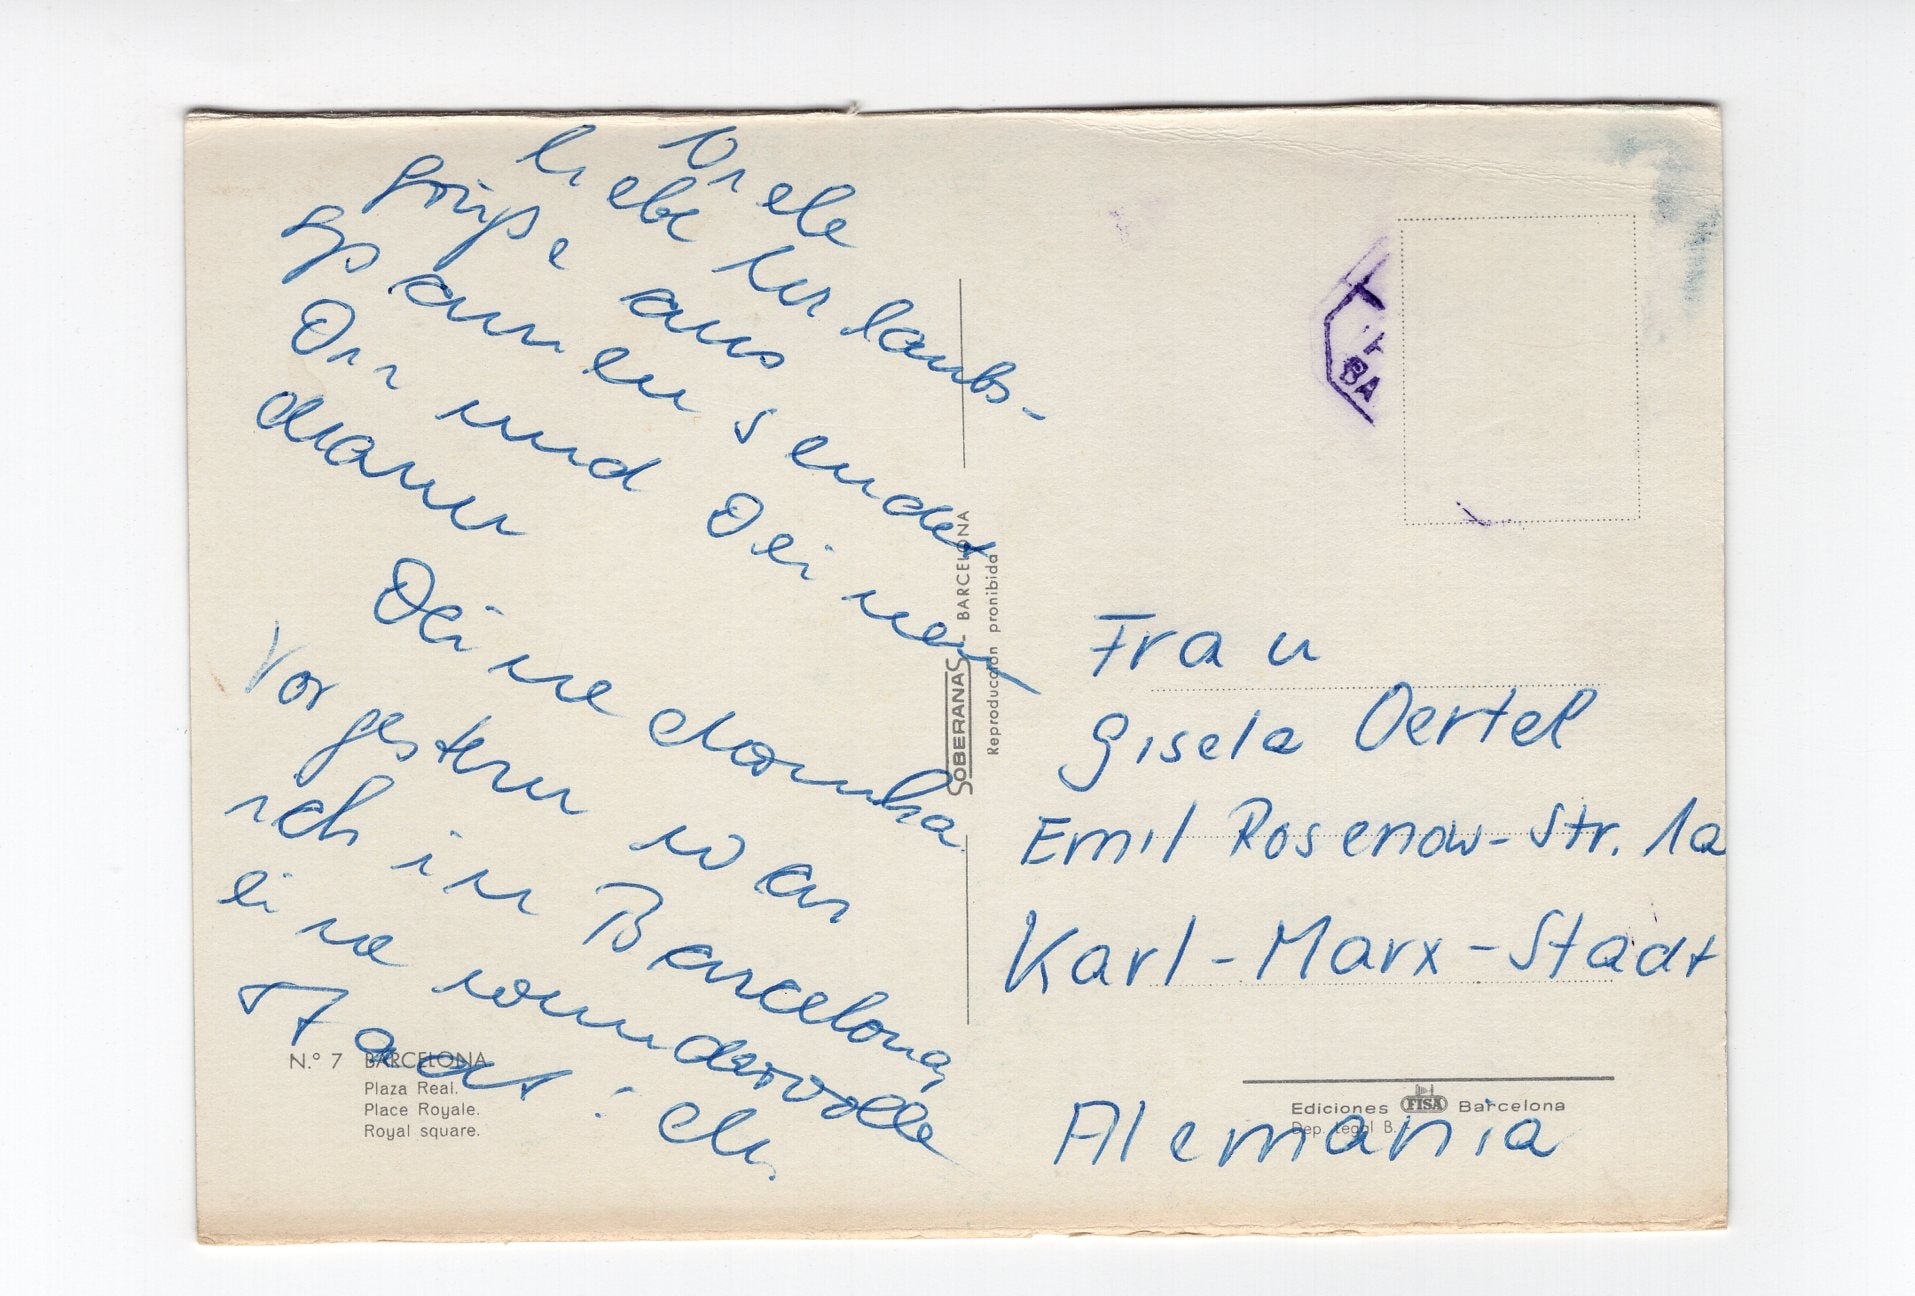 Viele
liebe Urlaubs-
grüße aus
Spanien sendet
Dir und Deinem
Mann
Deine Monika
Vorgestern war
ich in Barcelona,
eine wundervolle
Stadt! M.
N.º 7 BARCELONA
Plaza Real.
Place Royale.
Royal square.
SOBERANAS - BARCELONA
Reproducción prohibida
BA
Frau
Gisela Oertel
Emil Rosenow-Str. 1a
Karl-Marx-Stadt
Alemania
Ediciones FISA Barcelona
Dep. Legal B.